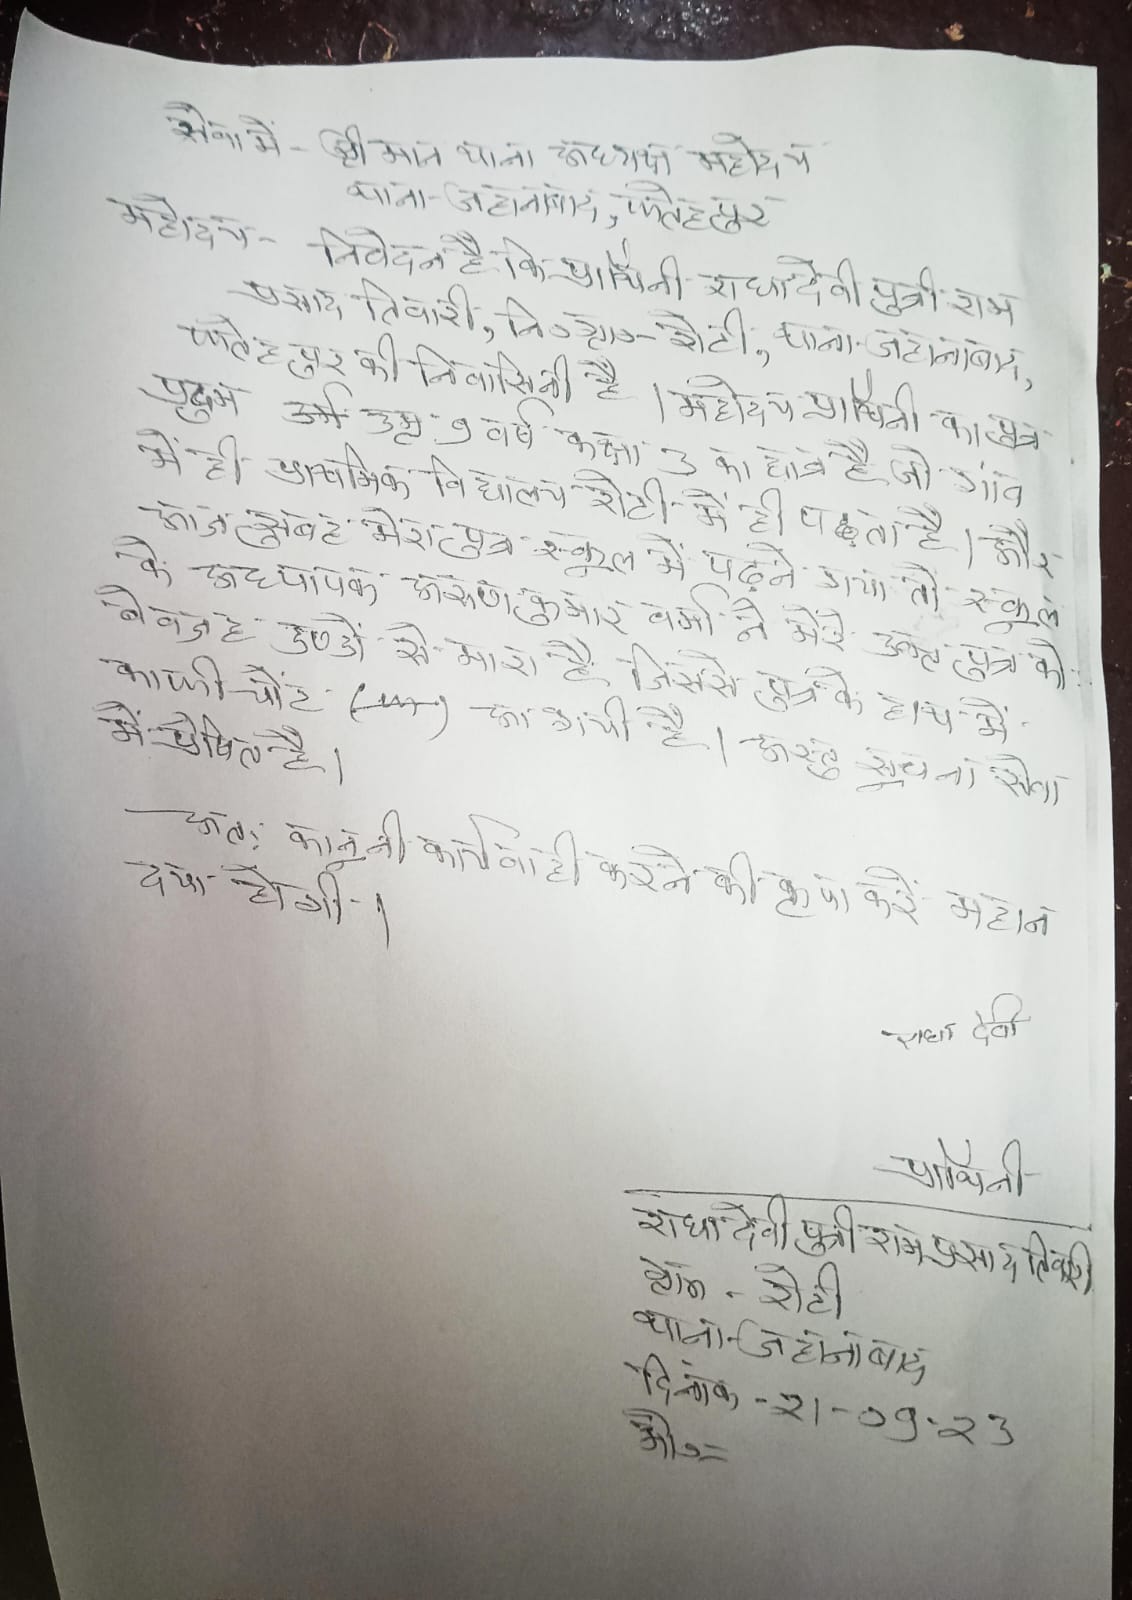 सेवा में - श्री मान थाना अध्यक्ष महोदय
थाना- जहानाबाद, फतेहपुर
महोदय - निवेदन है कि प्रार्थिनी राधा देवी पुत्री राम
प्रसाद तिवारी, नि० ग्रा०- रोटी, थाना- जहानाबाद,
फतेहपुर की निवासिनी है। महोदय प्रार्थिनी का पुत्र
उम्र 9 वर्ष कक्षा 3 का छात्र है जो गांव
में ही प्राथमिक विद्यालय रोटी में ही पढ़ता है। और
आज सुबह मेरा पुत्र स्कूल में पढ़ने गया तो स्कूल
के अध्यापक अरुण कुमार वर्मा ने मेरे उक्त पुत्र को
बेवजह डण्डों से मारा है जिससे पुत्र के हाथ में
काफी चोट आ गयी है। अस्तु सूचना सेवा
में प्रेषित है।
अतः कानूनी कार्यवाही करने की कृपा करें महान
दया होगी।
राधा देवी
प्रार्थिनी
राधा देवी पुत्री राम प्रसाद तिवारी
ग्राम - रोटी
थाना- जहानाबाद
दिनांक - 21-09-23
मो०=